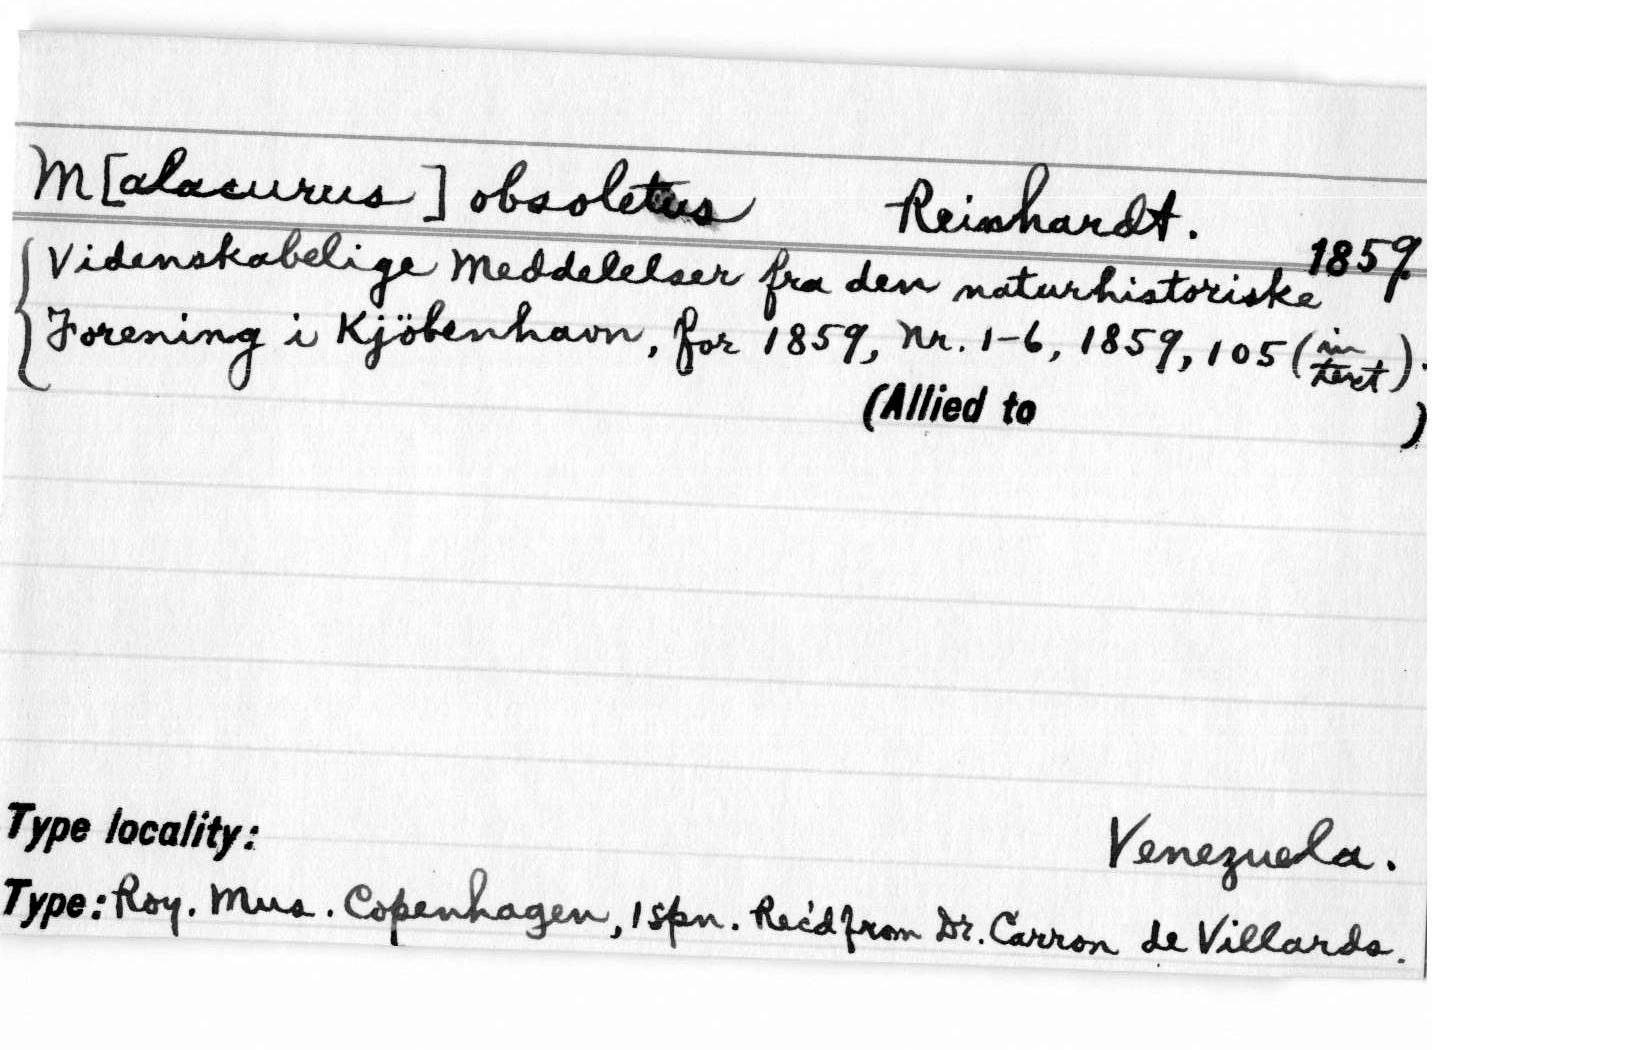 M[alacurus] obsoletus Reinhardt.
1859.
Videnskabelige Meddelelser fra den naturhistoriske
Forening i Kjöbenhavn, for 1859, Nr. 1-6, 1859, 105 (in text).
(Allied to )
Type locality: Venezuela.
Type: Roy. Mus. Copenhagen, 1 spn. Rec'd from Dr. Carron de Villards.